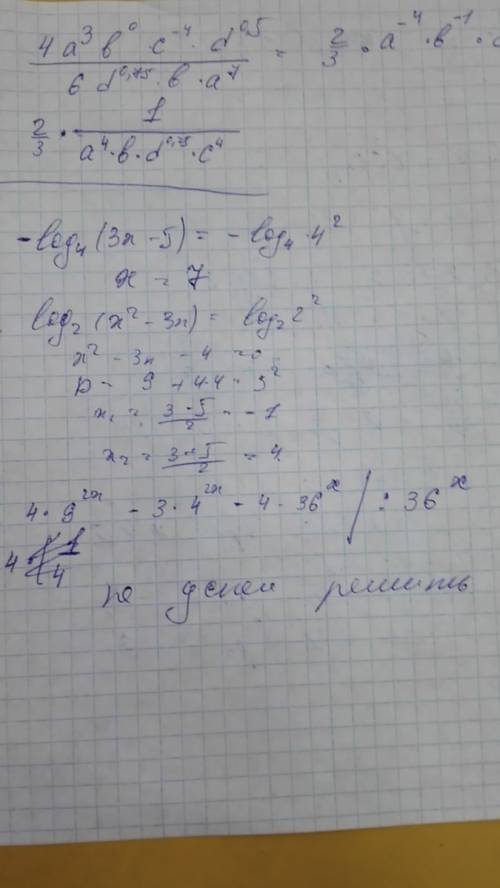 4a³b⁰c⁻⁴·d⁰,⁵ / 6d⁰,⁷⁵·b·a⁷ = 2/3·a⁻⁴·b⁻¹·c
2/3 · 1 / a⁴·b·d⁰,²⁵·c⁴
-log₄(3x-5) = -log₄·4²
x = 7
log₂(x²-3x) = log₂2²
x²-3x-4=0
D = 9+4·4=5²
x₁ = 3-5/2 = -1
x₂ = 3+5/2 = 4
4·9²ˣ - 3·4²ˣ - 4·36ˣ /:36ˣ
4·
4
не успел решить